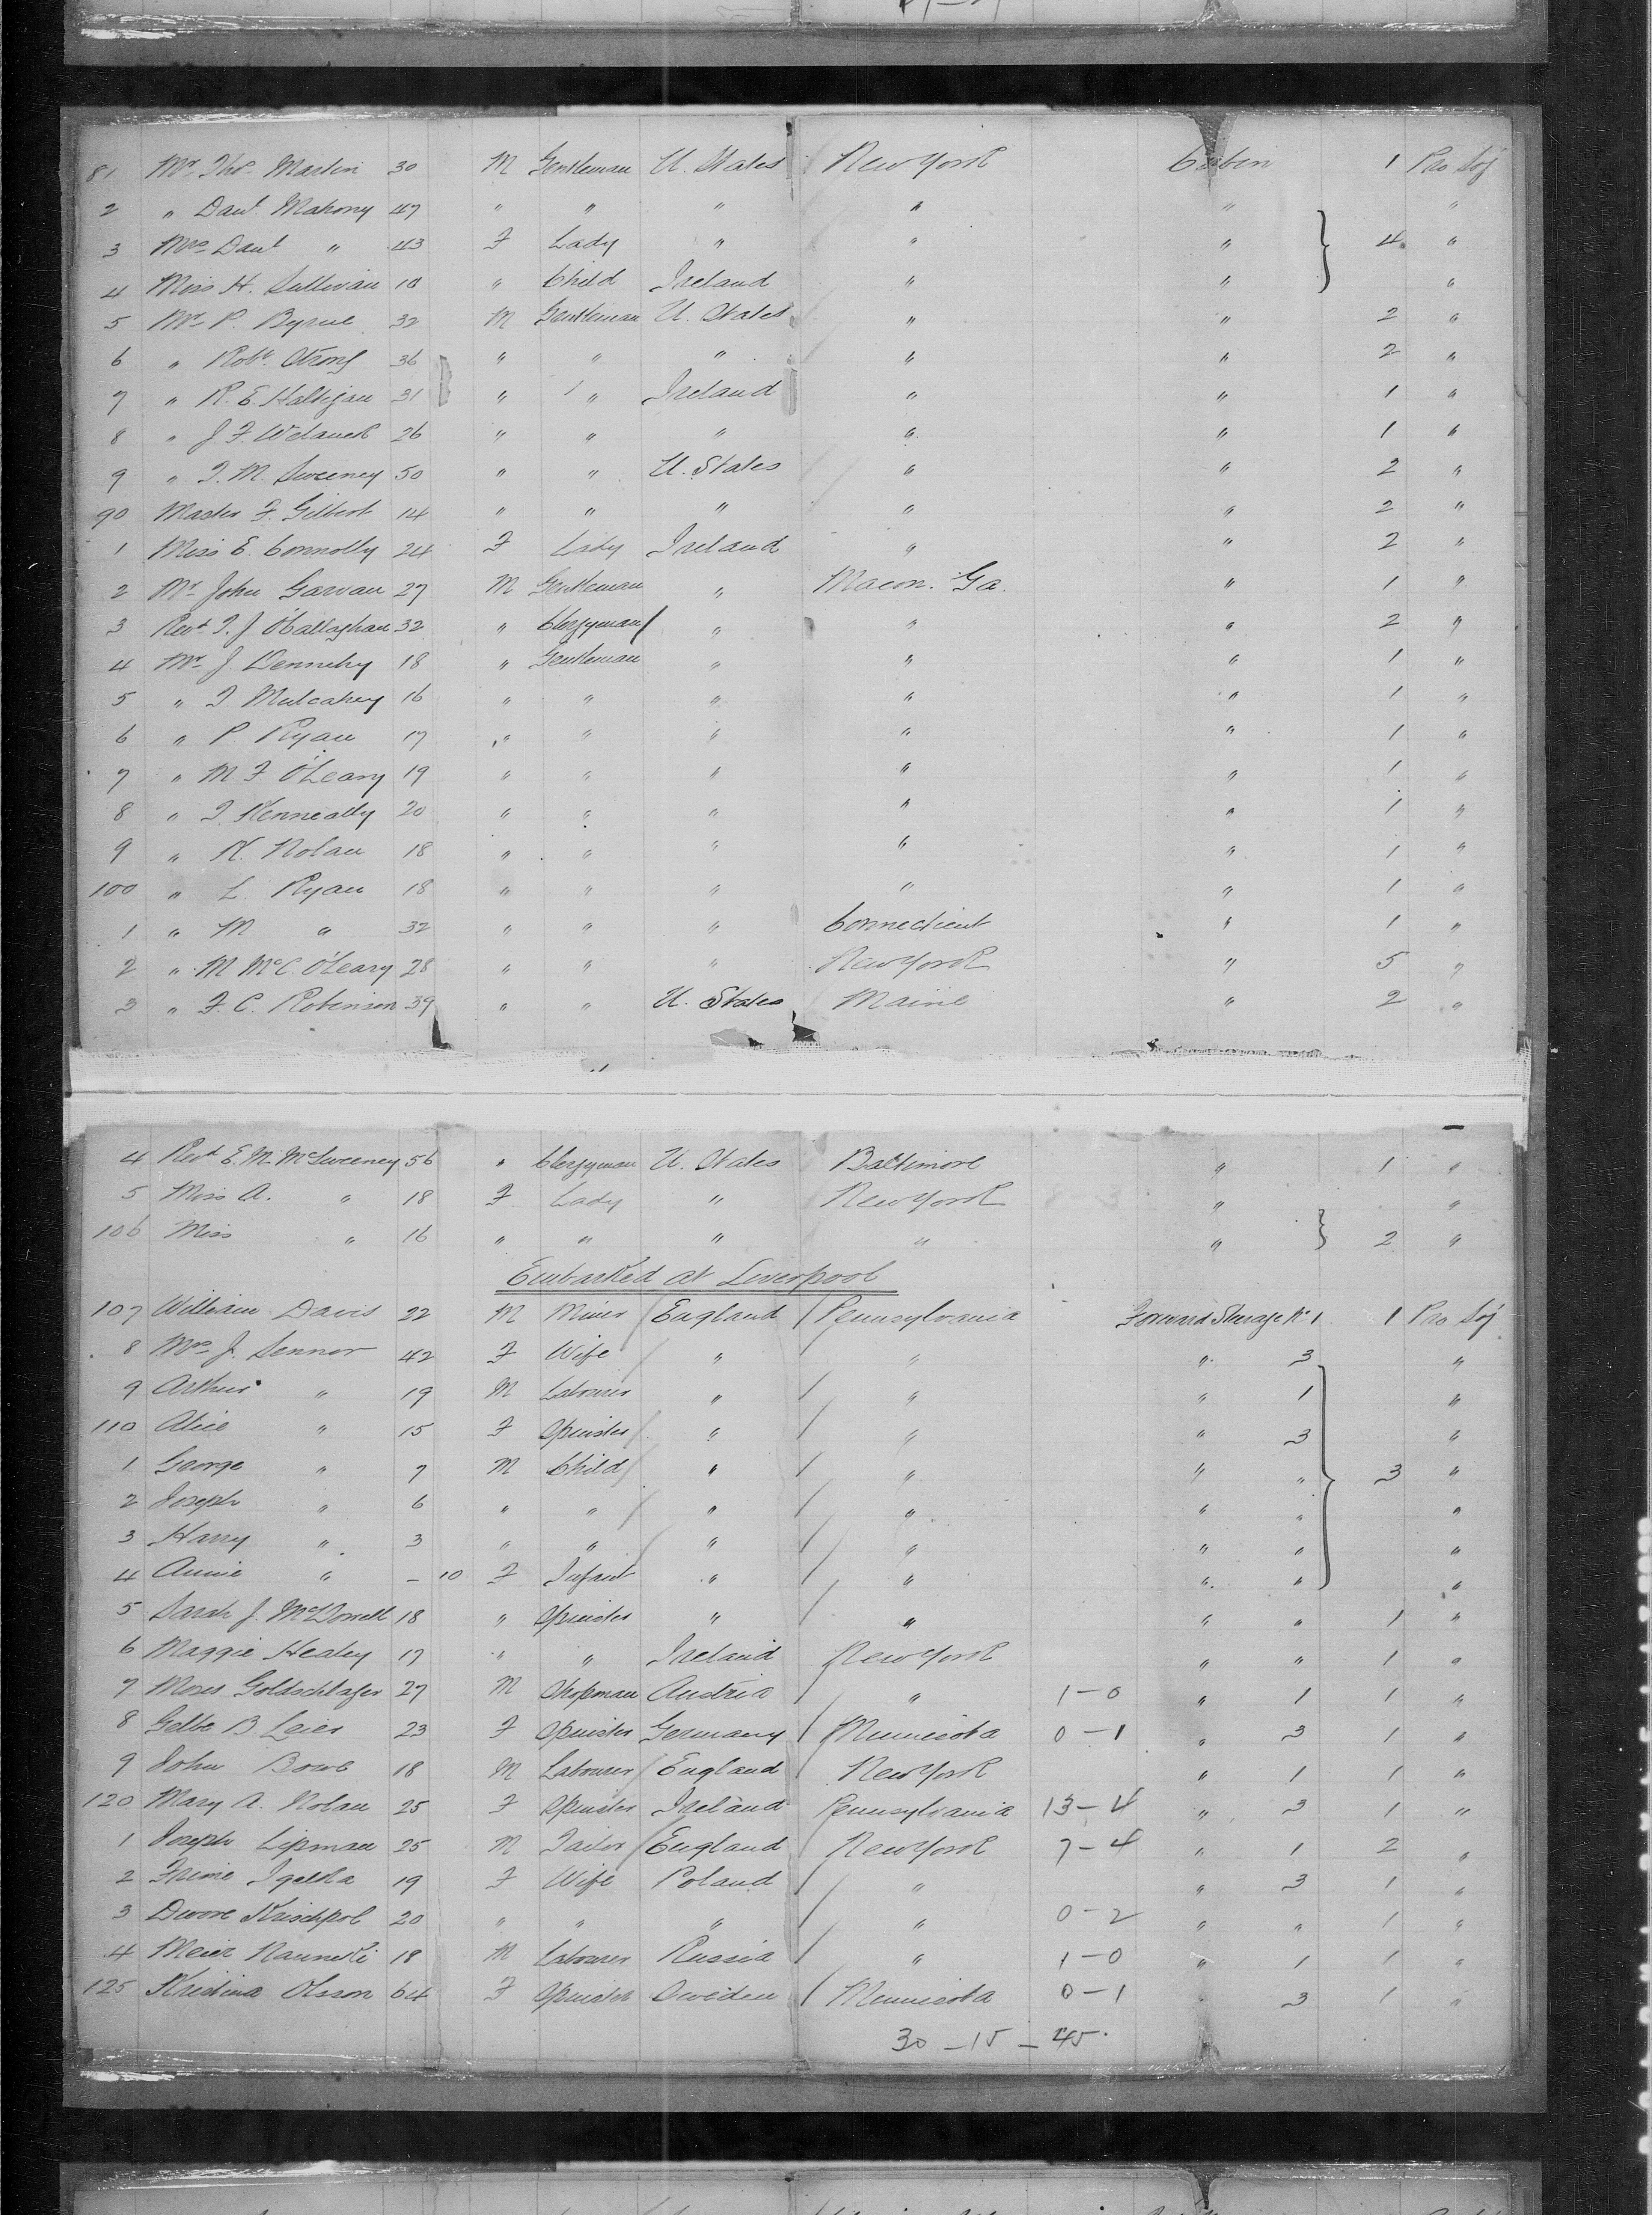 81 Mr. Thos. Martin 30 M Gentleman U. States New York Cabin 1 Pro Soj
2 " Danl. Mahony 47 " " " " " "
3 Mrs. Danl. " 43 F Lady " " " 4 "
4 Miss H. Sullivan 10 " Child Ireland " " "
5 Mr. P. Byrne 32 M Gentleman U. States " " 2 "
6 " Robt. Strong 36 " " " " " 2 "
7 " R. E. Haltigan 31 " " Ireland " " 1 "
8 " J. F. 26 " " " " " 1 "
9 " T. M. Sweeney 50 " " U. States " " 2 "
90 Master F. Gilbert 14 " " " " " 2 "
1 Miss E. Connolly 24 F Lady Ireland " " 2 "
2 Mr. John Garvan 27 M Gentleman " Macon. Ga. " 1 "
3 Revd. T. J. O'Callaghan 32 " Clergyman " " " 2 "
4 Mr. J. Dennehy 18 " Gentleman " " " 1 "
5 " T Mulcahey 16 " " " " " 1 "
6 " P. Ryan 17 " " " " " 1 "
7 " M F O'Leary 19 " " " " " 1 "
8 " T. Kenneally 20 " " " " " 1 "
9 " K. Nolan 18 " " " " " 1 "
100 " L. Ryan 18 " " " " " 1 "
1 " M " 32 " " " Connecticut " 1 "
2 " M McC. O'Leary 28 " " " New York " 5 "
3 " F. C. Robinson 39 " " U. States Maine " 2 "
4 Revd. E. M. McSweeney 56 " Clergyman U. States Baltimore " 1 "
5 Miss A. " 18 F Lady " New York " "
106 Miss " 16 " " " " " 2 "
Embarked at Liverpool
107 William Davis 22 M Miner England Pennsylvania Forward Sterage No. 1 1 Pro Soj
8 Mrs. J. Sennor 42 F Wife " " " 3 "
9 Arthur " 19 M Labourer " " " 1 "
110 Alice " 15 F Spinster " " " 3 "
1 George " 7 M Child " " " " 3 "
2 Joseph " 6 " " " " " " "
3 Harry " 3 " " " " " " "
4 Annie " – 10 F Infant " " " " "
5 Sarah J. McDonell 18 " Spinster " " " " 1 "
6 Maggie Healey 17 " " Ireland New York " " 1 "
7 Moses Goldschlager 27 M Shopman Austria " 1–0 " 1 1 "
8 Gelbe B. Leier 23 F Spinster Germany Minnisota 0–1 " 3 1 "
9 John Bowe 18 M Labourer England New York " 1 1 "
120 Mary A. Nolan 25 F Spinster Ireland Pennsylvania 13–4 " 3 1 "
1 Joseph Lipman 25 M Tailor England New York 7–4 " 1 2 "
2 Frime Igelka 19 F Wife Poland " " 3 1 "
3 Dwore Krischpol 20 " " " " 0–2 " " 1 "
4 Meier 18 M Labourer Russia " 1–0 " 1 1 "
125 Kristina Olsson 64 F Spinster Sweden Minnisota 0–1 " 3 1 "
30 – 15 – 45